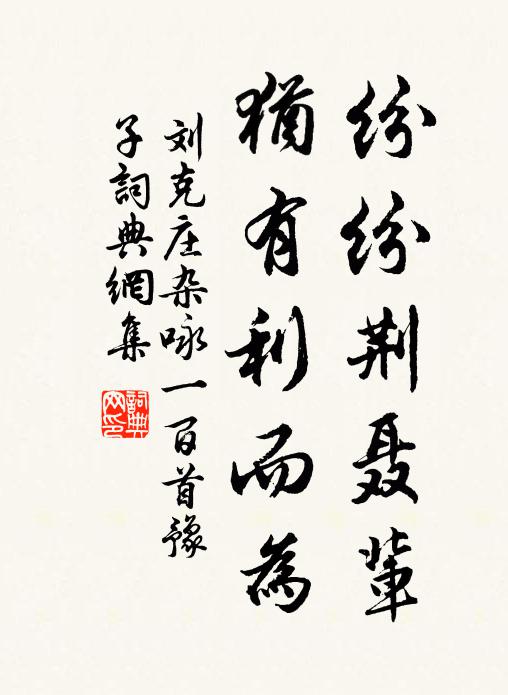 纷纷荆聂輩
猶有利而為
刘克庄杂咏一百首豫
子詞典網集
詞典网印